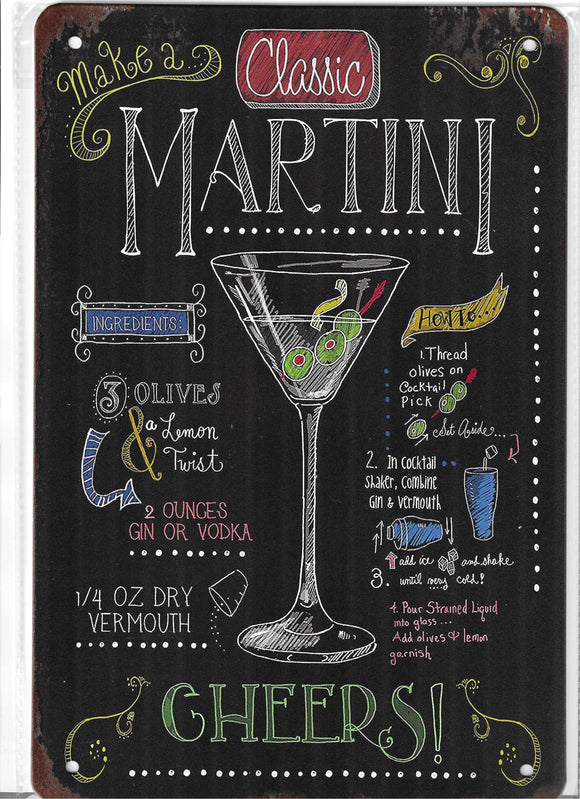 Make a
Classic
MARTINI
INGREDIENTS:
3 OLIVES
& a Lemon
Twist
2 OUNCES
GIN OR VODKA
1/4 OZ DRY
VERMOUTH
How to...
1. Thread
olives on
Cocktail
Pick
Set Aside...
2. In Cocktail
Shaker, combine
Gin & vermouth
add ice and shake
3. until very cold!
4. Pour Strained Liquid
into glass...
Add olives & lemon
garnish
CHEERS!